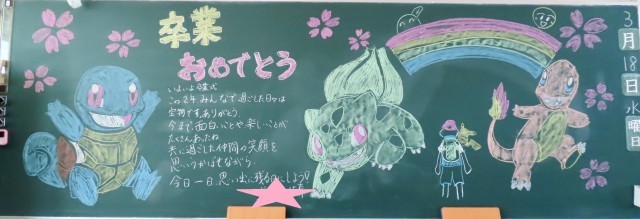 卒業
おめでとう
いよいよ卒業式
この24みんなで過ごした日々は
宝物です。ありがとう
今まで、面白いことや楽しいことが
たくさんあったね
共に過ごした仲間の笑顔を
思いうかばせながら
今日一日、思い出に残るのにしよう!
3
月
18
日
水
曜
日